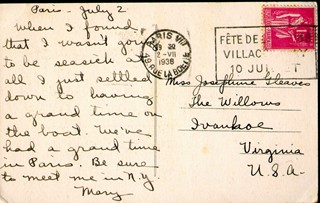 Paris - July 2
When I found
that I wasn't going
to be seasick at
all I just settled
down to having
a grand time on
the boat. We've
had a grand time
in Paris. Be sure
to meet me in N.Y
Mary
PARIS VIII
2-VII
1938
FÊTE DE
VILLAC
10 JUILLET
Miss Josephine Gleaves
The Willows
Ivanhoe
Virginia
U.S.A-